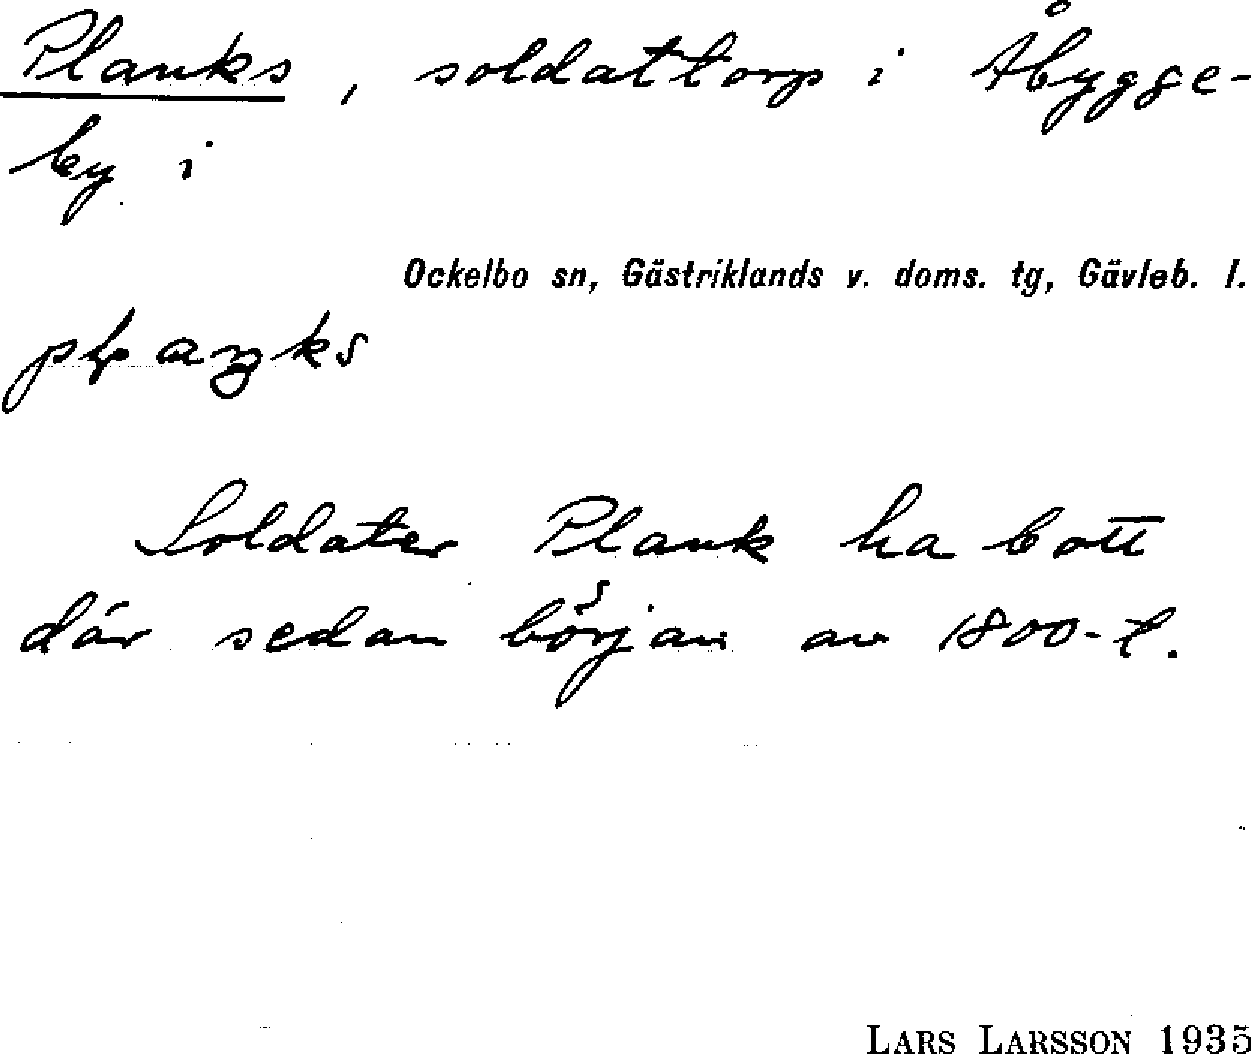 Planks, soldattorp i Åbygge-
by i
Ockelbo sn, Gästriklands v. doms. tg, Gävleb. l.
Soldater Plank ha bott
där sedan början av 1800-t.
LARS LARSSON 1935